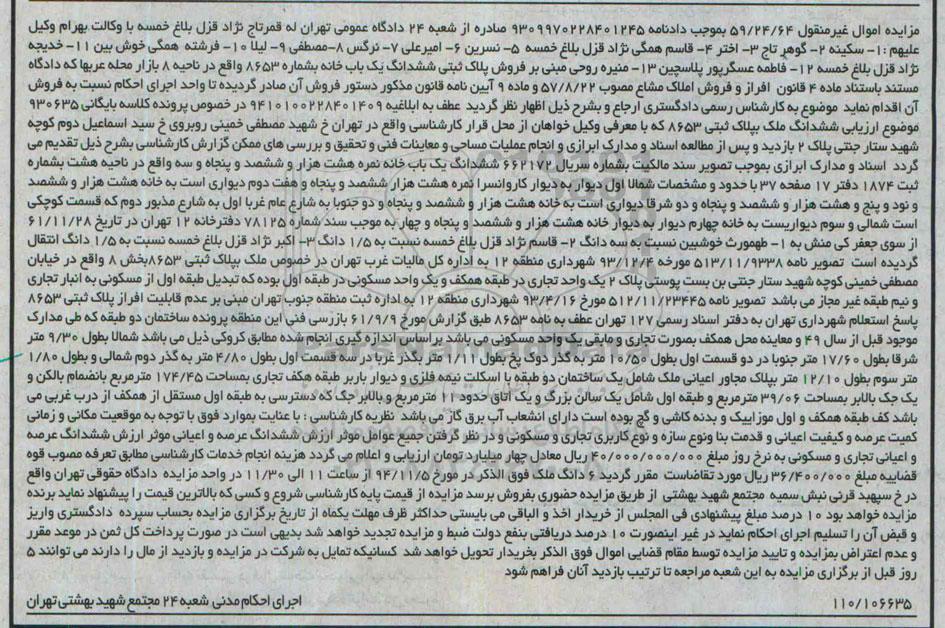 مزایده اموال غیرمنقول ۵۹/۲۴/۶۴ بموجب دادنامه ۹۳۰۹۹۷۰۲۲۸۴۰۱۲۴۵ صادره از شعبه ۲۴ دادگاه عمومی تهران له قمرتاج نژاد قزل بلاغ خمسه با وکالت بهرام وکیل
علیهم :۱- سکینه ۲- گوهر تاج ۳- اختر ۴- قاسم همگی نژاد قزل بلاغ خمسه ۵- نسرین ۶- امیرعلی ۷- نرگس ۸-مصطفی ۹- لیلا ۱۰- فرشته همگی خوش بین ۱۱- خدیجه
نژاد قزل بلاغ خمسه ۱۲- فاطمه عسگرپور پلاسچین ۱۳- منیره روحی مبنی بر فروش پلاک ثبتی ششدانگ یک باب خانه بشماره ۸۶۵۳ واقع در ناحیه ۸ بازار محله عربها که دادگاه
مستند باستناد ماده ۴ قانون افراز و فروش املاک مشاع مصوب ۵۷/۸/۲۲ و ماده ۹ آیین نامه قانون مذکور دستور فروش آن صادر گردیده تا واحد اجرای احکام نسبت به فروش
آن اقدام نماید موضوع به کارشناس رسمی دادگستری ارجاع و بشرح ذیل اظهار نظر گردید عطف به ابلاغیه ۹۴۱۰۱۰۰۲۲۸۴۰۱۴۰۹ در خصوص پرونده کلاسه بایگانی ۹۳۰۶۳۵
موضوع ارزیابی ششدانگ ملک بپلاک ثبتی ۸۶۵۳ که با معرفی وکیل خواهان از محل قرار کارشناسی واقع در تهران خ شهید مصطفی خمینی روبروی خ سید اسماعیل دوم کوچه
شهید ستار جنتی پلاک ۲ بازدید و پس از مطالعه اسناد و مدارک ابرازی و انجام عملیات مساحی و معاینات فنی و تحقیق و بررسی های ممکن گزارش کارشناسی بشرح ذیل تقدیم می
گردد اسناد و مدارک ابرازی بموجب تصویر سند مالکیت بشماره سریال ۶۶۲۱۷۲ ششدانگ یک باب خانه نمره هشت هزار و ششصد و پنجاه و سه واقع در ناحیه هشت بشماره
ثبت ۱۸۷۴ دفتر ۱۷ صفحه ۳۷ با حدود و مشخصات شمالا اول دیوار به دیوار کاروانسرا نمره هشت هزار ششصد و پنجاه و هفت دوم دیواری است به خانه هشت هزار و ششصد
و نود و پنج و هشت هزار و ششصد و پنجاه و دو شرقا دیواری است به خانه هشت هزار و ششصد و پنجاه و دو جنوبا به شارع عام غربا اول به شارع مذبور دوم که قسمت کوچکی
است شمالی و سوم دیواریست به خانه چهارم دیوار به دیوار خانه هشت هزار و ششصد و پنجاه و چهار به موجب سند شماره ۷۸۱۲۵ دفترخانه ۱۲ تهران در تاریخ ۶۱/۱۱/۲۸
از سوی جعفر کی منش به ۱- طهمورث خوشبین نسبت به سه دانگ ۲- قاسم نژاد قزل بلاغ خمسه نسبت به ۱/۵ دانگ ۳- اکبر نژاد قزل بلاغ خمسه نسبت به ۱/۵ دانگ انتقال
گردیده است تصویر نامه ۵۱۳/۱۱/۹۳۳۸ مورخه ۹۳/۱۲/۴ شهرداری منطقه ۱۲ به اداره کل مالیات غرب تهران در خصوص ملک بپلاک ثبتی ۸۶۵۳بخش ۸ واقع در خیابان
مصطفی خمینی کوچه شهید ستار جنتی بن بست پوستی پلاک ۲ یک واحد تجاری در طبقه همکف و یک واحد مسکونی در طبقه اول بوده که تبدیل طبقه اول از مسکونی به انبار تجاری
و نیم طبقه غیر مجاز می باشد تصویر نامه ۵۱۲/۱۱/۲۳۴۴۵ مورخ ۹۳/۴/۱۶ شهرداری منطقه ۱۲ به اداره ثبت منطقه جنوب تهران مبنی بر عدم قابلیت افراز پلاک ثبتی ۸۶۵۳
پاسخ استعلام شهرداری تهران به دفتر اسناد رسمی ۱۲۷ تهران عطف به نامه ۸۶۵۳ طبق گزارش مورخ ۶۱/۹/۹ بازرسی فنی این منطقه پرونده ساختمان دو طبقه که طی مدارک
موجود قبل از سال ۴۹ و معاینه محل همکف بصورت تجاری و مابقی یک واحد مسکونی می باشد بر اساس اندازه گیری انجام شده مطابق کروکی ذیل می باشد شمالا بطول ۹/۳۰ متر
شرقا بطول ۱۷/۶۰ متر جنوبا در دو قسمت اول بطول ۱۰/۵۰ متر به گذر دوک پخ بطول ۱/۱۱ متر بگذر غربا در سه قسمت اول بطول ۴/۸۰ متر به گذر دوم شمالی و بطول ۱/۸۰
متر سوم بطول ۱۲/۱۰ متر بپلاک مجاور اعیانی ملک شامل یک ساختمان دو طبقه با اسکلت نیمه فلزی و دیوار باربر طبقه هکف تجاری بمساحت ۱۷۴/۴۵ مترمربع بانضمام بالکن و
یک جک بالابر بمساحت ۳۹/۰۶ مترمربع و طبقه اول شامل یک سالن بزرگ و یک اتاق حدود ۱۱ مترمربع و بالابر جک که دسترسی به طبقه اول مستقل از همکف از درب غربی می
باشد کف طبقه همکف و اول موزاییک و بدنه کاشی و گچ بوده است دارای انشعاب آب برق گاز می باشد نظریه کارشناسی : با عنایت بموارد فوق با توجه به موقعیت مکانی و زمانی
کمیت عرصه و کیفیت اعیانی و قدمت بنا ونوع سازه و نوع کاربری تجاری و مسکونی و در نظر گرفتن جمیع عوامل موثر ارزش ششدانگ عرصه و اعیانی موثر ارزش ششدانگ عرصه
و اعیانی تجاری و مسکونی به نرخ روز مبلغ ۴۰/۰۰۰/۰۰۰/۰۰۰ ریال معادل چهار میلیارد تومان ارزیابی و اعلام می گردد هزینه انجام خدمات کارشناسی مطابق تعرفه مصوب قوه
قضاییه مبلغ ۳۶/۴۰۰/۰۰۰ ریال مورد تقاضاست مقرر گردید ۶ دانگ ملک فوق الذکر در مورخ ۹۴/۱۱/۵ از ساعت ۱۱ الی ۱۱/۳۰ در واحد مزایده دادگاه حقوقی تهران واقع
در خ سپهبد قرنی نبش سمیه مجتمع شهید بهشتی از طریق مزایده حضوری بفروش برسد مزایده از قیمت پایه کارشناسی شروع و کسی که بالاترین قیمت را پیشنهاد نماید برنده
مزایده خواهد بود ۱۰ درصد مبلغ پیشنهادی فی المجلس از خریدار اخذ و الباقی می بایستی حداکثر ظرف مهلت یکماه از تاریخ برگزاری مزایده بحساب سپرده دادگستری واریز
و قبض آن را تسلیم اجرای احکام نماید در غیر اینصورت ۱۰ درصد دریافتی بنفع دولت ضبط و مزایده تجدید خواهد شد بدیهی است در صورت پرداخت کل ثمن در موعد مقرر
و عدم اعتراض بمزایده و تایید مزایده توسط مقام قضایی اموال فوق الذکر بخریدار تحویل خواهد شد کسانیکه تمایل به شرکت در مزایده و بازدید از مال را دارند می توانند ۵
روز قبل از برگزاری مزایده به این شعبه مراجعه تا ترتیب بازدید آنان فراهم شود
۱۱۰/۱۰۶۶۳۵ اجرای احکام مدنی شعبه ۲۴ مجتمع شهید بهشتی تهران